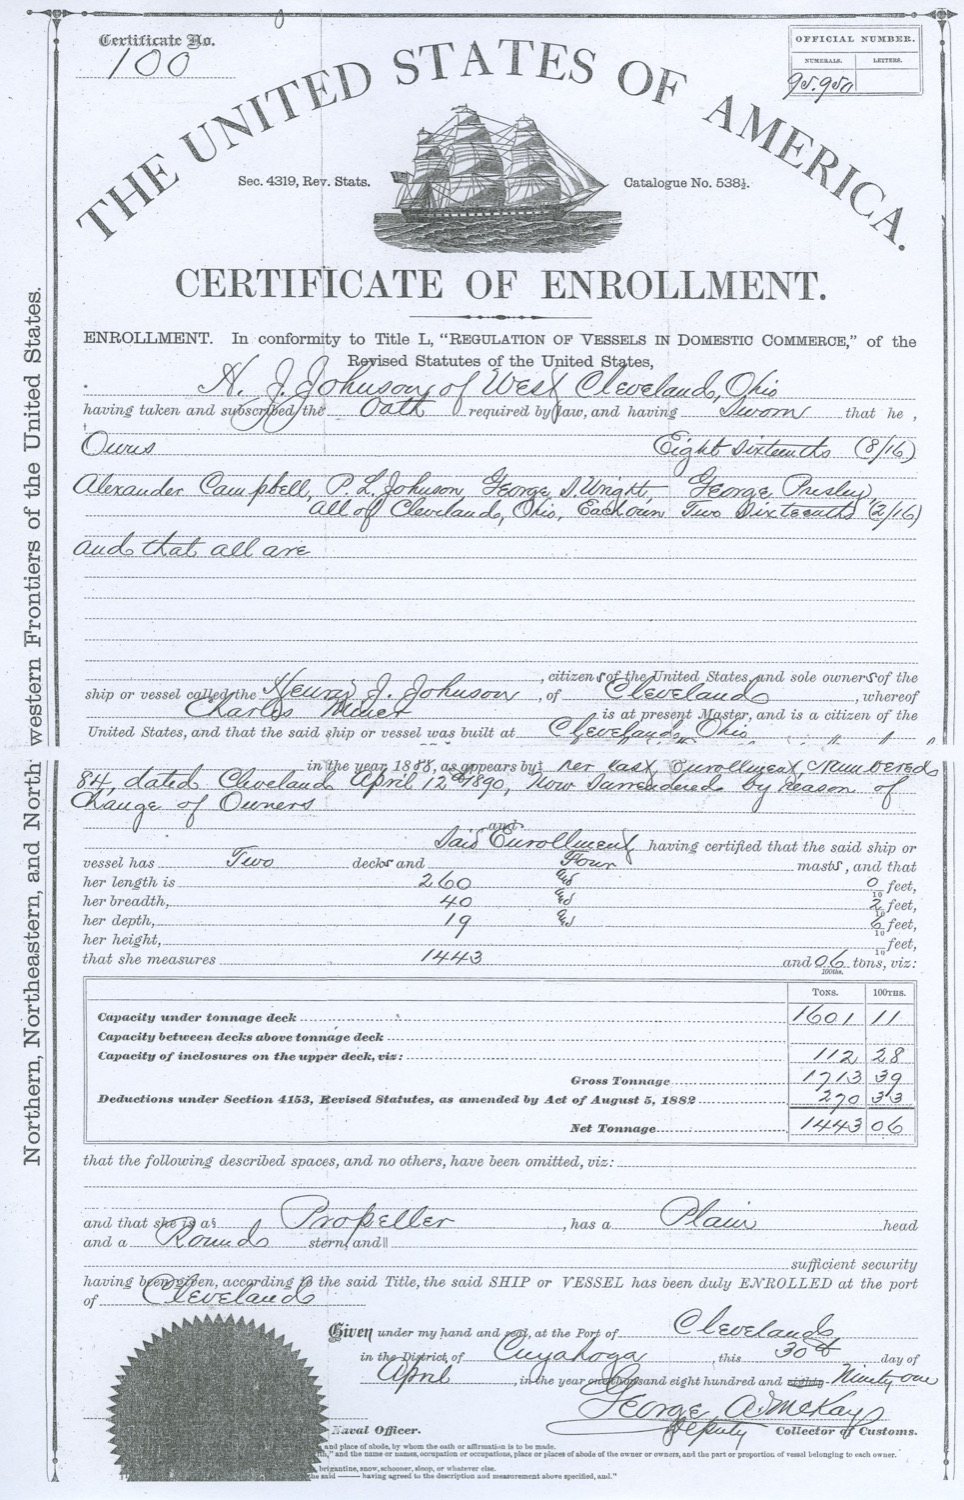 Certificate No.
100
OFFICIAL NUMBER.
NUMERALS. LETTERS.
95.950
THE UNITED STATES OF AMERICA.
Sec. 4319, Rev. Stats. Catalogue No. 538½.
CERTIFICATE OF ENROLLMENT.
ENROLLMENT. In conformity to Title L, "REGULATION OF VESSELS IN DOMESTIC COMMERCE," of the
Revised Statutes of the United States,
H. J. Johnson of West Cleveland, Ohio
having taken and subscribed the Oath required by law, and having Sworn that he
Owns Eight Sixteenths (8/16)
Alexander Campbell, P. L. Johnson, George S. Wright, George Presley,
all of Cleveland, Ohio, Each own Two Sixteenths (2/16)
and that all are
, citizens of the United States, and sole owners of the
ship or vessel called the Henry J. Johnson, of Cleveland, whereof
Charles Miner is at present Master, and is a citizen of the
United States, and that the said ship or vessel was built at Cleveland, Ohio
in the year 1888, as appears by her last Enrollment, Numbered
84, dated Cleveland April 12th 1890, Now Surrendered by reason of
Change of Owners
and
Said Enrollment having certified that the said ship or
vessel has Two decks and Four masts, and that
her length is 260 0/10 feet,
her breadth, 40 2/10 feet,
her depth, 19 6/10 feet,
her height, /10 feet,
that she measures 1443 and 06/100ths. tons, viz:
TONS. 100THS.
Capacity under tonnage deck 1601 11
Capacity between decks above tonnage deck
Capacity of inclosures on the upper deck, viz: 112 28
Gross Tonnage 1713 39
Deductions under Section 4153, Revised Statutes, as amended by Act of August 5, 1882 270 33
Net Tonnage 1443 06
that the following described spaces, and no others, have been omitted, viz:
and that she is a Propeller, has a Plain head
and a Round stern, and
sufficient security
having been given, according to the said Title, the said SHIP or VESSEL has been duly ENROLLED at the port
of Cleveland
Given under my hand and seal, at the Port of Cleveland
in the District of Cuyahoga, this 30th day of
April, in the year one thousand eight hundred and eighty Ninety one
George A. McKay
Deputy
Naval Officer. Collector of Customs.
and place of abode, by whom the oath or affirmation is to be made.
" and the name or names, occupation or occupations, place or places of abode of the owner or owners, and the part or proportion of vessel belonging to each owner.
brigantine, snow, schooner, sloop, or whatever else.
he said —— having agreed to the description and measurement above specified, and."
Northern, Northeastern, and North western Frontiers of the United States.